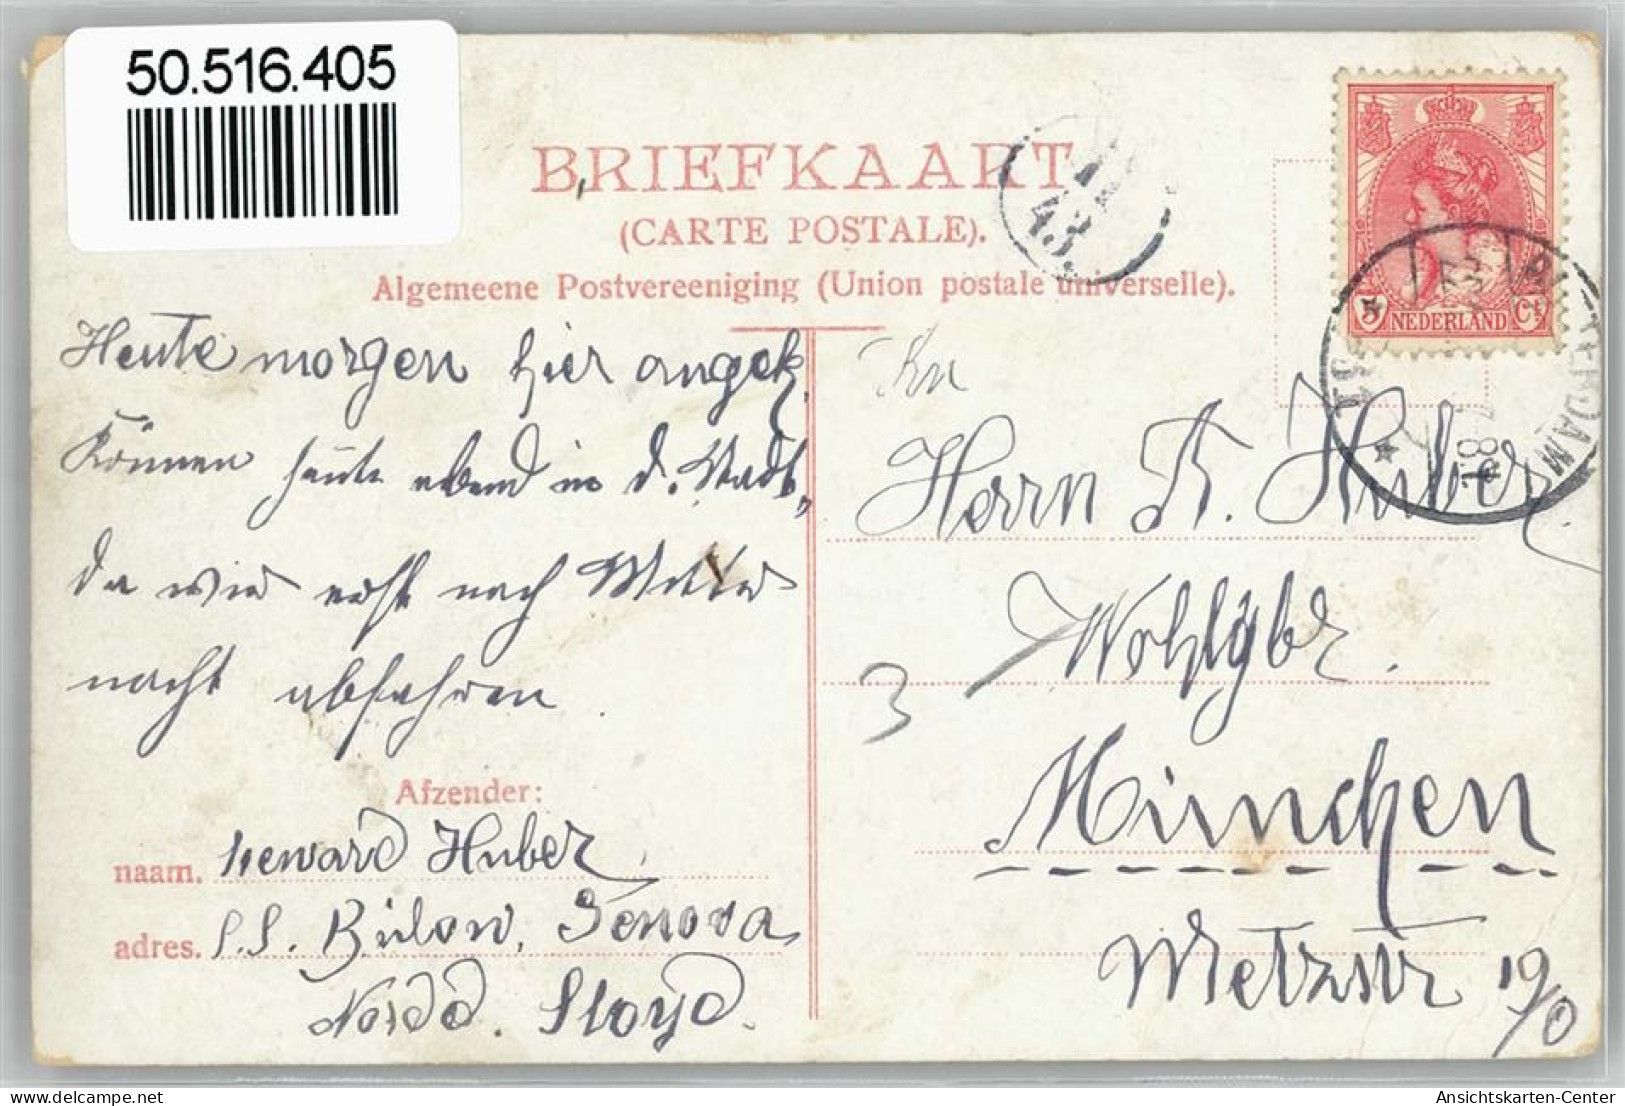 50.516.405
BRIEFKAART
(CARTE POSTALE).
Algemeene Postvereeniging (Union postale universelle).
5 NEDERLAND Ct
TERDAM
43.
Heute morgen hier angek.
Können heute abend in d. Stadt,
da wir erst nach Mitter
nacht abfahren.
Afzender:
naam. Steward Huber
adres. S.S. Bülow, Genova
Nordd. Lloyd.
An
Herrn A. Huber
Wohlgb.
3
München
Metzstr 19/0
Ansichtskarten-Center